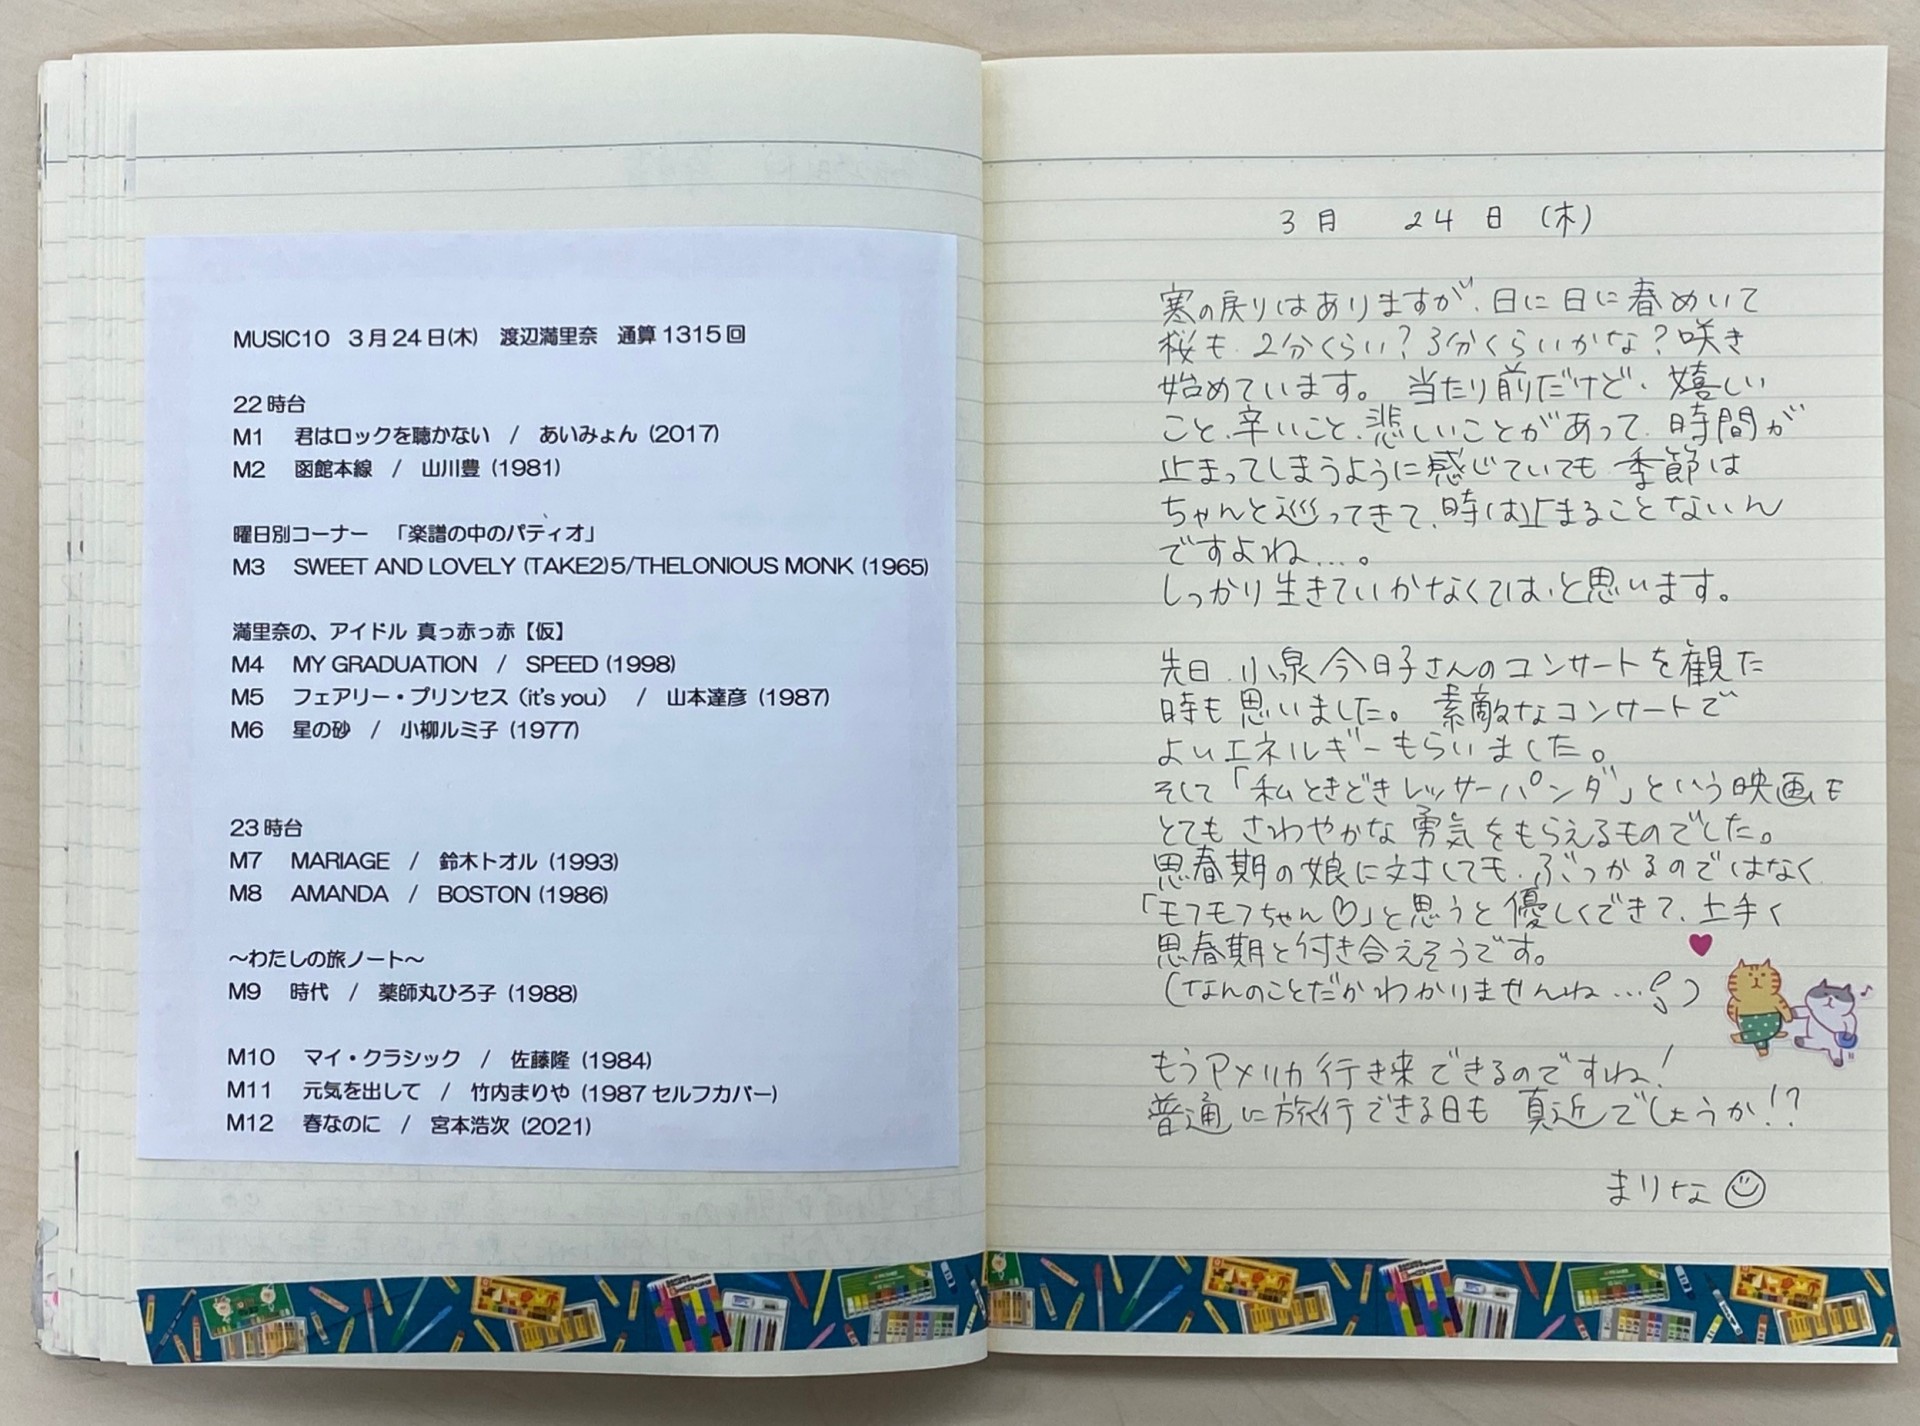 MUSIC10 3月24日(木) 渡辺満里奈 通算1315回
22時台
M1 君はロックを聴かない / あいみょん (2017)
M2 函館本線 / 山川豊 (1981)
曜日別コーナー 「楽譜の中のパティオ」
M3 SWEET AND LOVELY (TAKE2)5/THELONIOUS MONK (1965)
満里奈の、アイドル 真っ赤っ赤【仮】
M4 MY GRADUATION / SPEED (1998)
M5 フェアリー・プリンセス (it's you) / 山本達彦 (1987)
M6 星の砂 / 小柳ルミ子 (1977)
23時台
M7 MARIAGE / 鈴木トオル (1993)
M8 AMANDA / BOSTON (1986)
～わたしの旅ノート～
M9 時代 / 薬師丸ひろ子 (1988)
M10 マイ・クラシック / 佐藤隆 (1984)
M11 元気を出して / 竹内まりや (1987 セルフカバー)
M12 春なのに / 宮本浩次 (2021)
3月 24日 (木)
寒の戻りはありますが、日に日に春めいて
桜も、2分くらい?3分くらいかな?咲き
始めています。 当たり前だけど、嬉しい
こと、辛いこと、悲しいことがあって、時間が
止まってしまうように感じていても、季節は
ちゃんと巡ってきて、時は止まることないん
ですよね…。
しっかり生きていかなくては、と思います。
先日、小泉今日子さんのコンサートを観た
時も思いました。 素敵なコンサートで
よいエネルギーもらいました。
そして「私ときどきレッサーパンダ」という映画も
とてもさわやかな勇気をもらえるものでした。
思春期の娘に対しても、ぶつかるのではなく、
「モフモフちゃん♡」と思うと優しくできて、上手く
思春期と付き合えそうです。
(なんのことだかわかりませんね…)
もうアメリカ行き来できるのですね!
普通に旅行できる日も 真近でしょうか!?
まりな